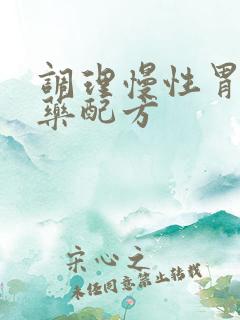 調理慢性胃
藥配方
宋心之
未经同意禁止转载